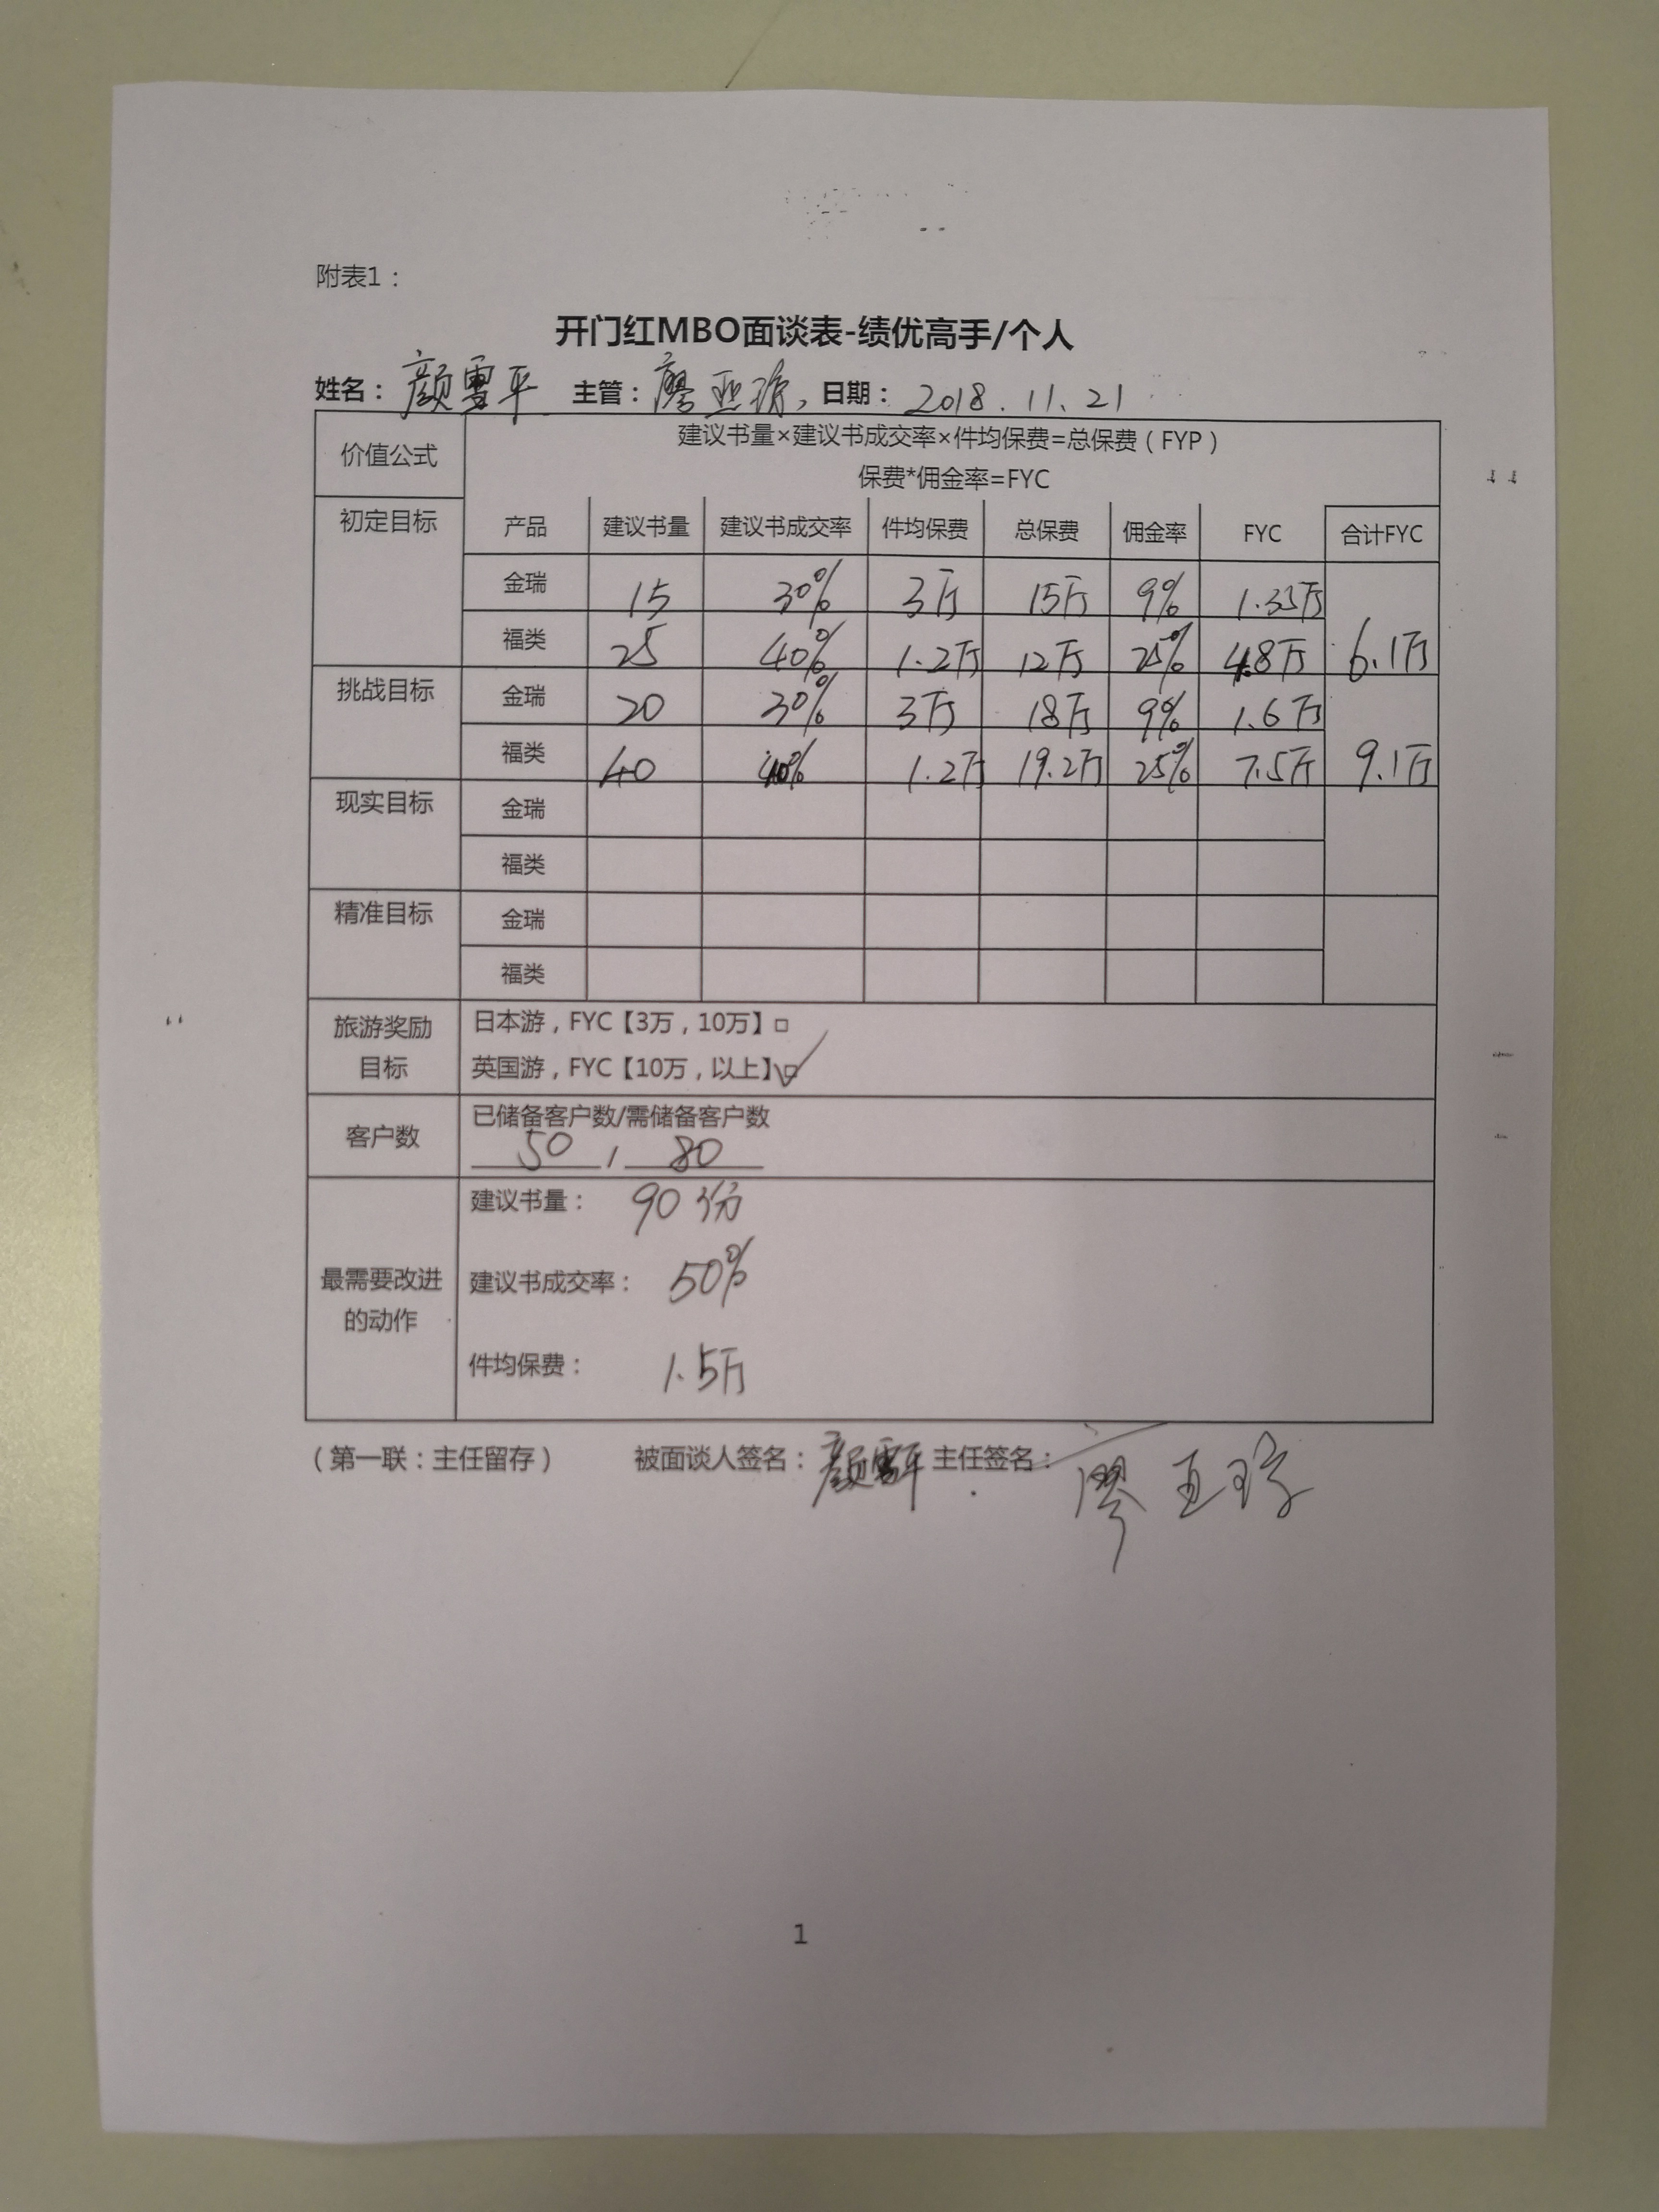 附表1：
开门红MBO面谈表-绩优高手/个人
姓名：颜雪平 主管：廖 日期：2018.11.21
价值公式 建议书量×建议书成交率×件均保费=总保费（FYP）
保费*佣金率=FYC
初定目标 产品 建议书量 建议书成交率 件均保费 总保费 佣金率 FYC 合计FYC
金瑞 15 30% 3万 15万 9% 1.35万
福类 25 40% 1.2万 12万 25% 4.8万 6.1万
挑战目标 金瑞 20 30% 3万 18万 9% 1.6万
福类 40 40% 1.2万 19.2万 25% 7.5万 9.1万
现实目标 金瑞
福类
精准目标 金瑞
福类
旅游奖励目标 日本游，FYC【3万，10万】□
英国游，FYC【10万，以上】☑
客户数 已储备客户数/需储备客户数
50 / 80
最需要改进的动作 建议书量： 90份
建议书成交率： 50%
件均保费： 1.5万
（第一联：主任留存） 被面谈人签名：颜雪平 主任签名：廖
1